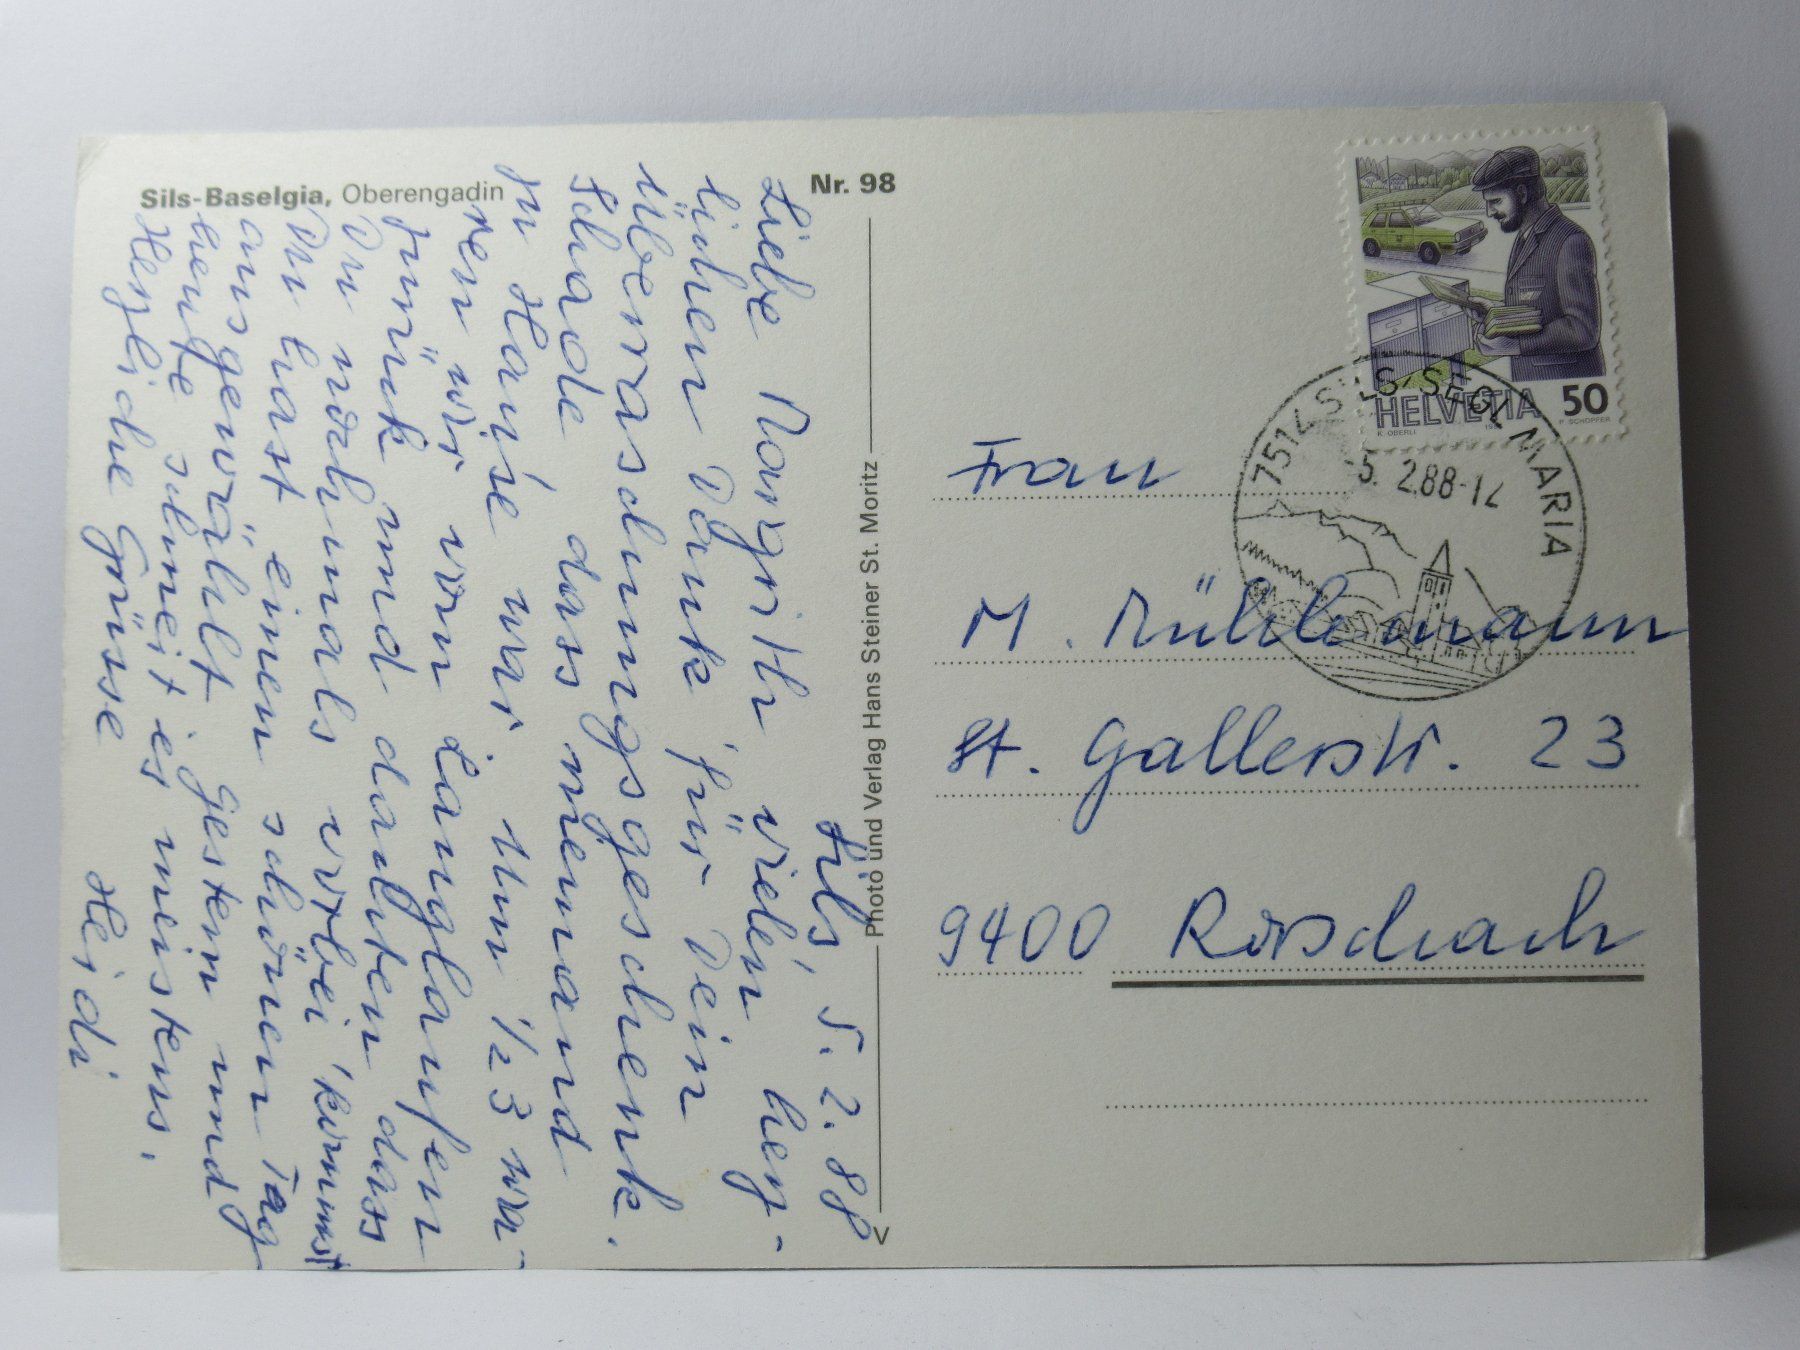 Sils-Baselgia, Oberengadin
Nr. 98
Photo und Verlag Hans Steiner St. Moritz
Sils, 5. 2. 88
Liebe Margrith vielen herz-
lichen Dank für Dein
Überraschungsgeschenk.
Schade dass niemand
zu Hause war. Um 1/2 3 wa-
ren wir vom Langlaufen
zurück und dachten dass
Du nochmals vorbei kommst
Du hast einen schönen Tag
ausgewählt gestern und
heute schneit es meistens.
Herzliche Grüsse
Heidi
HELVETIA 50
K. OBERLI
P. SCHOPFER
7514 SILS-SEGL MARIA
-5. 2.88-12
Frau
M. Mühlemann
St. Gallerstr. 23
9400 Rorschach